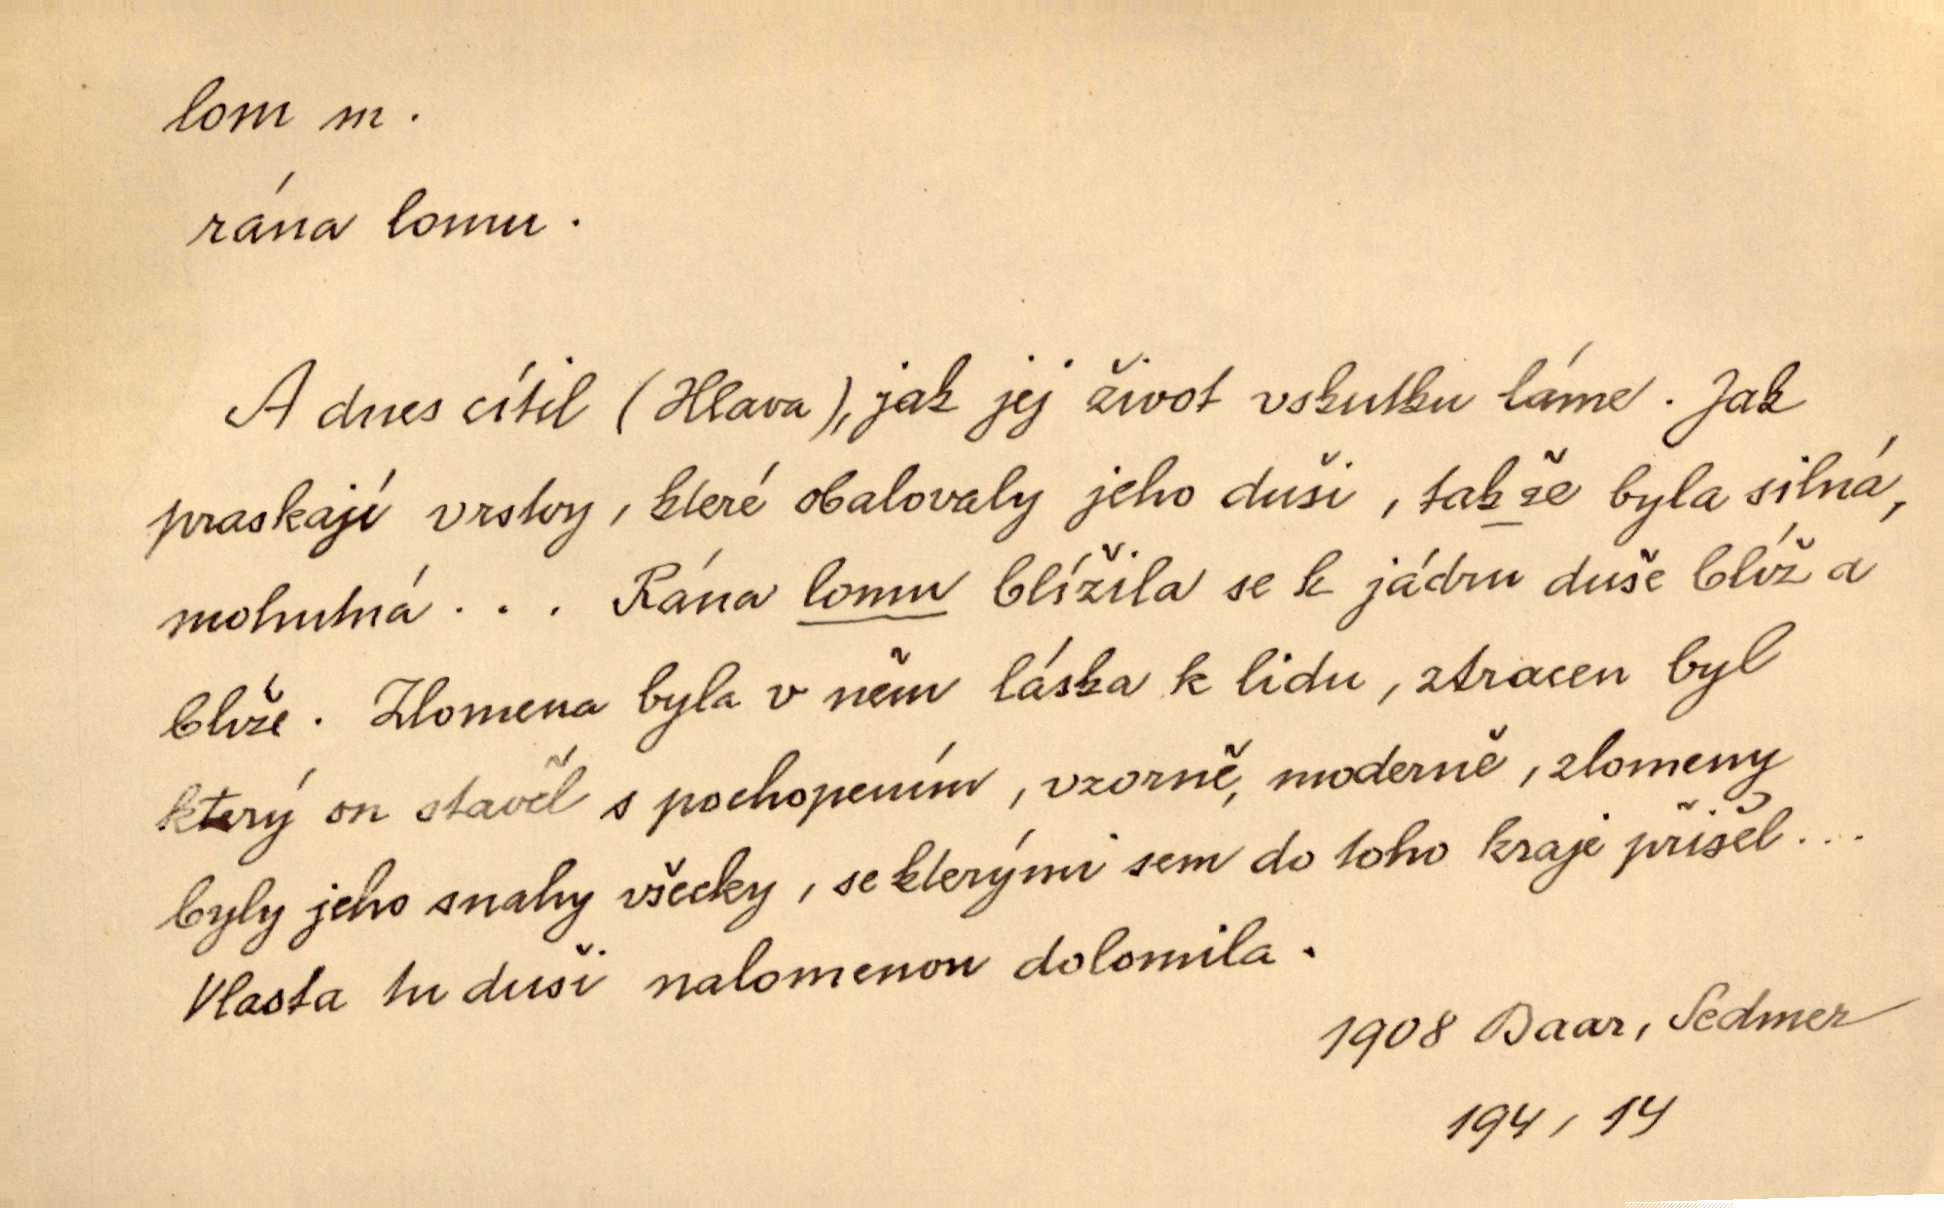 lom m.
rána lomu.
A dnes cítil (Hlava), jak jej život vskutku láme. Jak
praskají vrstvy, které obalovaly jeho duši, takže byla silná,
mohutná... Rána lomu blížila se k jádru duše blíž a
blíže. Zlomena byla v něm láska k lidu, ztracen byl
který on stavěl s pochopením, vzorně, moderně, zlomeny
byly jeho snahy všecky, se kterými sem do toho kraje přišel...
Vlasta tu duši nalomenou dolomila.
1908 Baar, Sedmer
194, 14